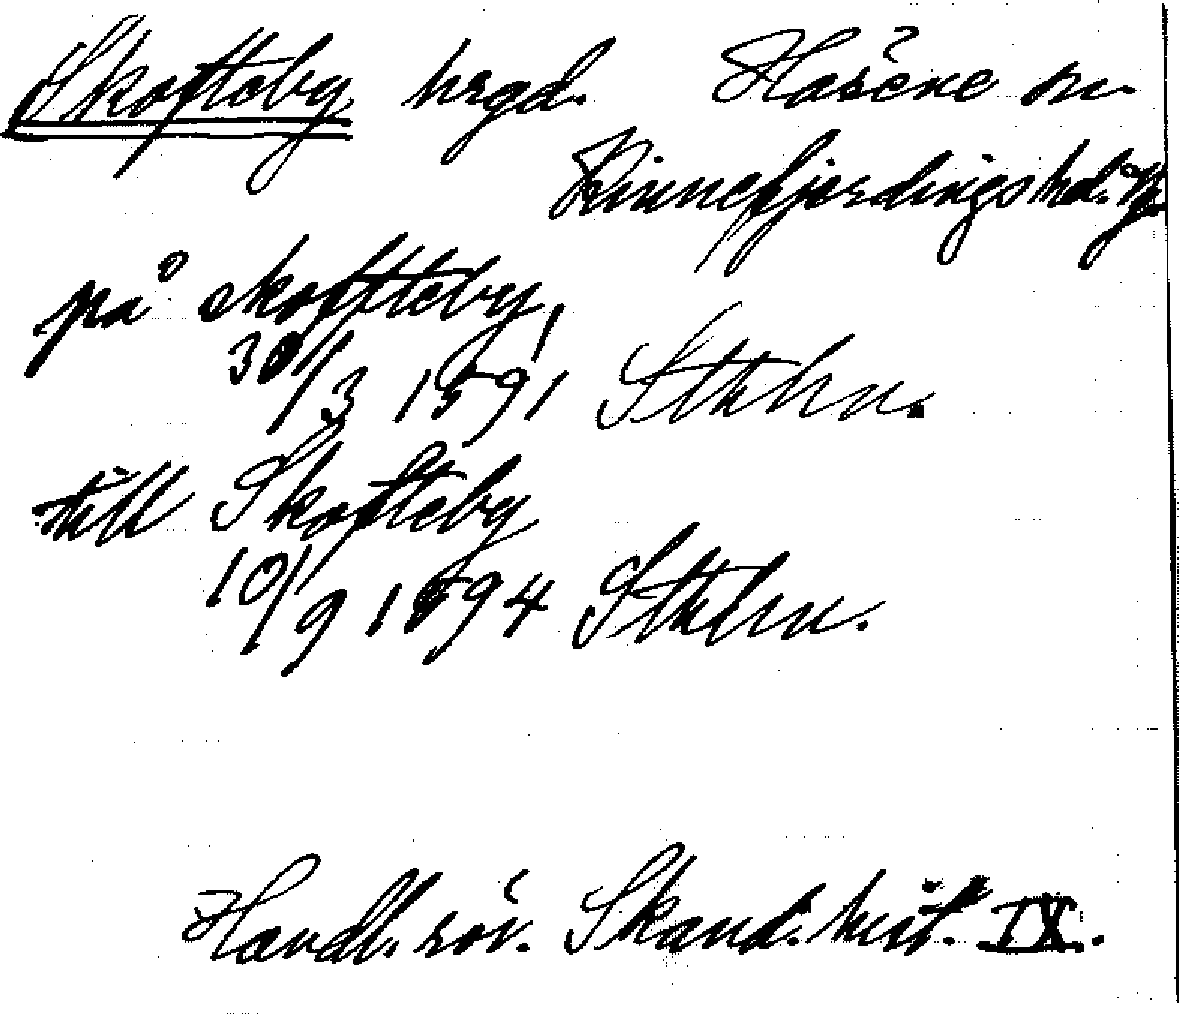 Skofteby hrgd. Hasene sn.
Kinnefjerdings hd. Vg.
på skoftteby,
30/3 1591 Sthlm.
till Skofteby
10/9 1594 Sthlm.
Handl. rör. Skand. hist. IX.